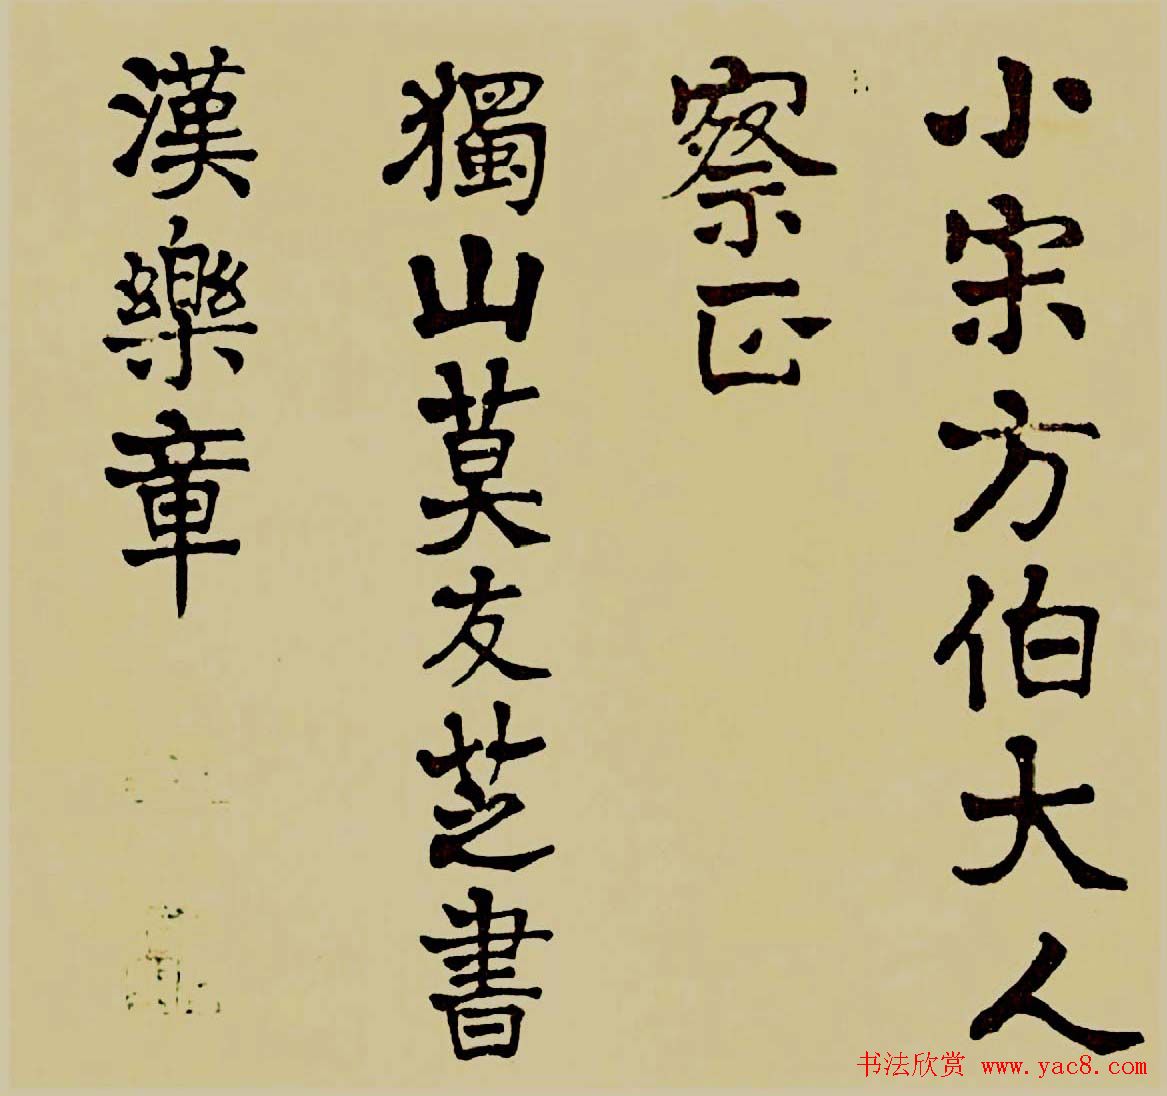 小宋方伯大人
察正
獨山莫友芝書
漢樂章
书法欣赏 www.yac8.com